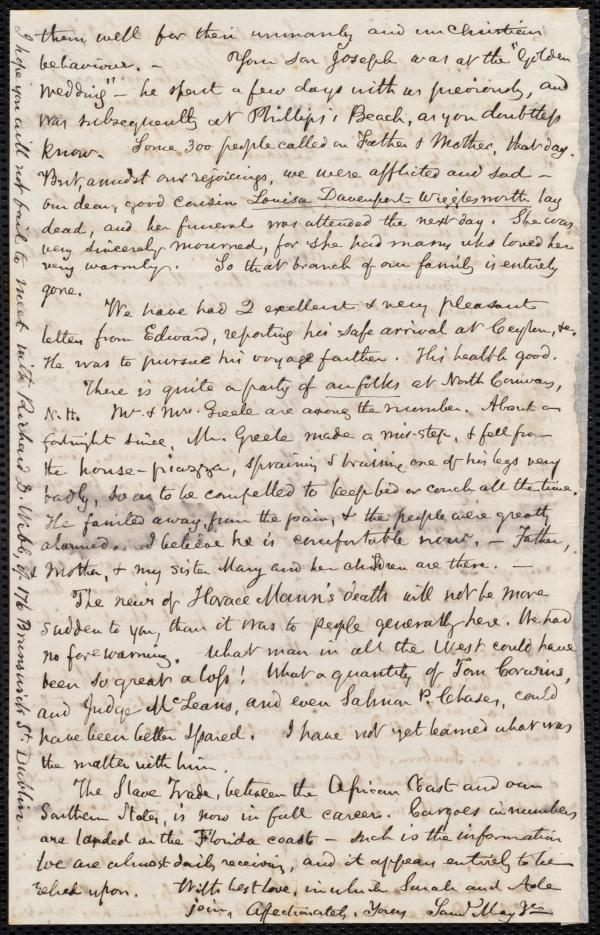 them well for their unmanly and unChristian
behaviour. - Your son Joseph was at the "Golden
Wedding" - he spent a few days with us previously, and
was subsequently at Phillips's Beach, as you doubtless
know. Some 300 people called on Father & Mother, that day.
But, amidst our rejoicings, we were afflicted and sad -
our dear, good cousin Louisa Davenport Wigglesworth lay
dead, and her funeral was attended the next day. She was
very sincerely mourned, for she had many who loved her
very warmly. So that branch of our family is entirely
gone.
We have had 2 excellent & very pleasant
letters from Edward, reporting his safe arrival at Ceylon, &c.
He was to pursue his voyage farther. His health good.
There is quite a party of our folks at North Conway,
N.H. Mr. & Mrs. Greele are among the number. About a
fortnight since, Mr. Greele made a mis-step, & fell from
the house-piazza, spraining & bruising one of his legs very
badly, so as to be compelled to keep bed or couch all the time.
He fainted away, from the pain, & the people were greatly
alarmed. I believe he is comfortable now. - Father,
& Mother, & my sister Mary and her children are there. -
The news of Horace Mann's death will not be more
sudden to you, than it was to people generally here. We had
no forewarning. What man in all the West could have
been so great a loss! What a quantity of Tom Corwins,
and Judge McLeans, and even Salmon P. Chases, could
have been better spared. I have not yet learned what was
the matter with him.
The Slave Trade, between the African Coast and our
Southern States, is now in full career. Cargoes in numbers
are landed on the Florida coast - such is the information
we are almost daily receiving, and it appears entirely to be
relied upon. With best love, in which Sarah and Ade
join, Affectionately, Yours Saml. May Jr.
I hope you will not fail to meet with Richard D. Webb, of 176 Brunswick St. Dublin.